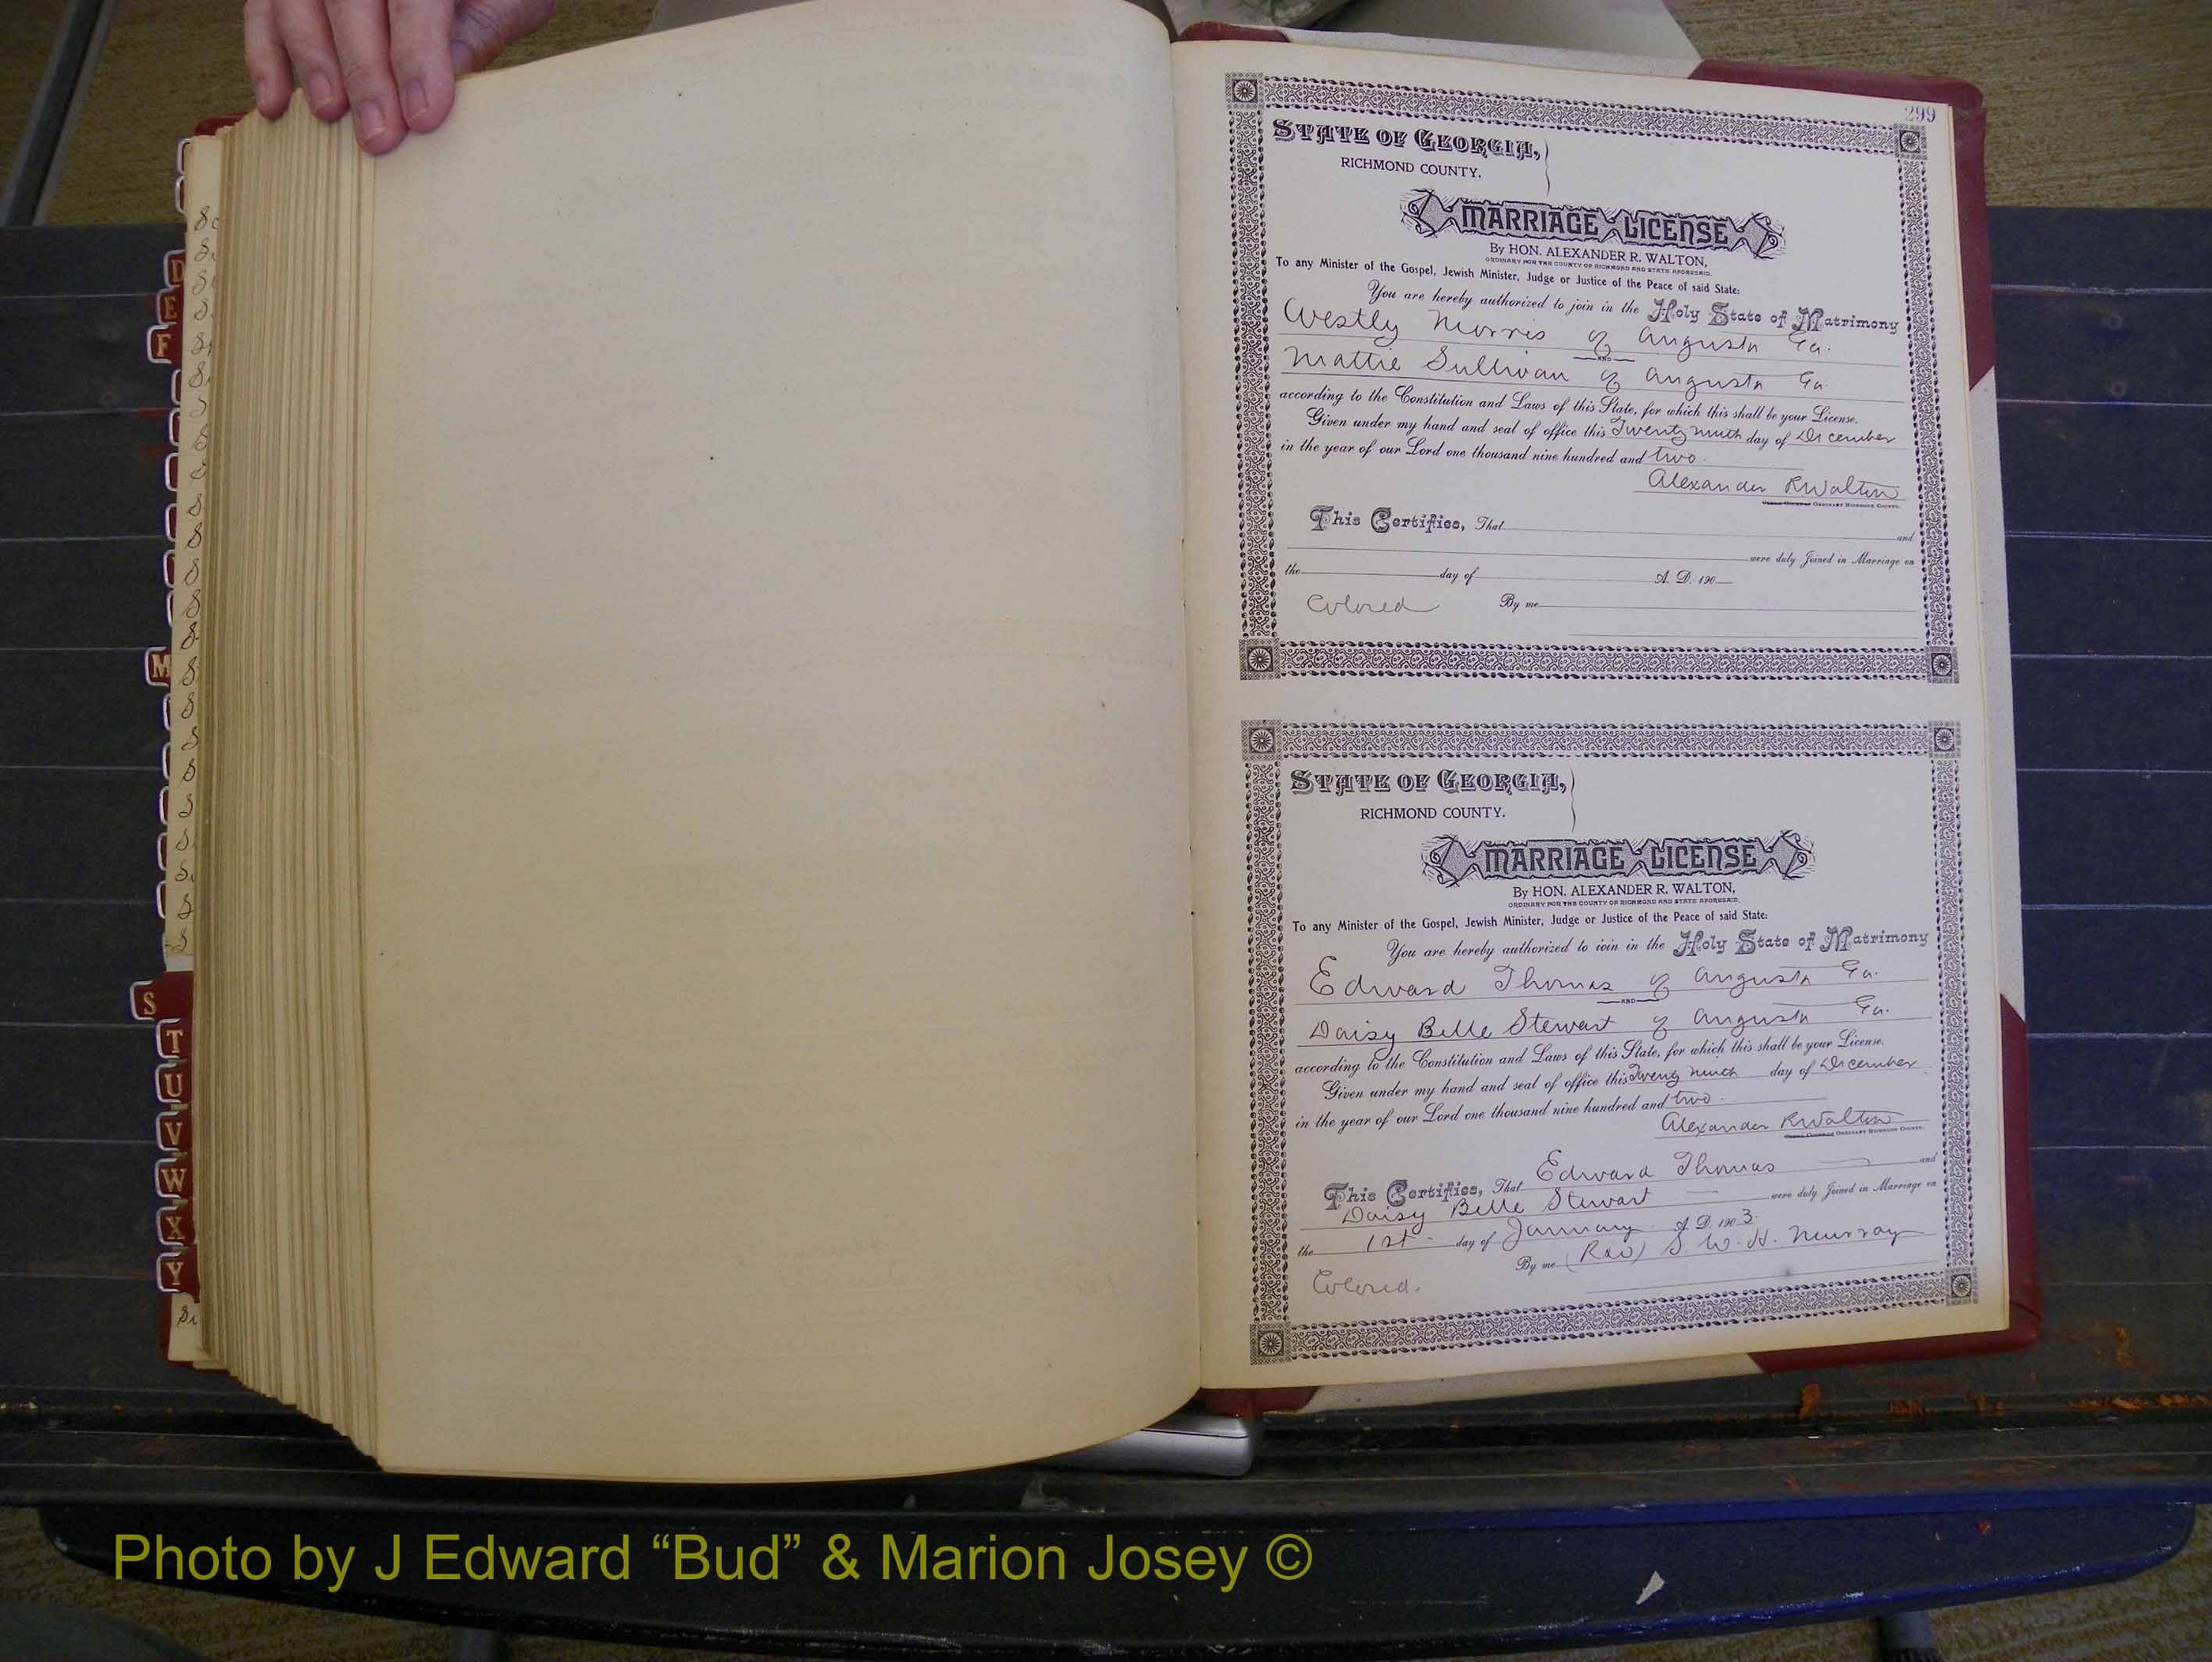 299
STATE OF GEORGIA,
RICHMOND COUNTY.
MARRIAGE LICENSE
By HON. ALEXANDER R. WALTON,
ORDINARY FOR THE COUNTY OF RICHMOND AND STATE AFORESAID.
To any Minister of the Gospel, Jewish Minister, Judge or Justice of the Peace of said State:
You are hereby authorized to join in the Holy State of Matrimony
Westly Morris of Augusta Ga.
AND
Mattie Sullivan of Augusta Ga.
according to the Constitution and Laws of this State, for which this shall be your License.
Given under my hand and seal of office this Twenty ninth day of December
in the year of our Lord one thousand nine hundred and two.
Alexander R Walton
ORDINARY RICHMOND COUNTY.
This Certifies, That and
were duly Joined in Marriage on
the day of A. D. 190
Colored By me
STATE OF GEORGIA,
RICHMOND COUNTY.
MARRIAGE LICENSE
By HON. ALEXANDER R. WALTON,
ORDINARY FOR THE COUNTY OF RICHMOND AND STATE AFORESAID.
To any Minister of the Gospel, Jewish Minister, Judge or Justice of the Peace of said State:
You are hereby authorized to join in the Holy State of Matrimony
Edward Thomas of Augusta Ga.
AND
Daisy Belle Stewart of Augusta Ga.
according to the Constitution and Laws of this State, for which this shall be your License.
Given under my hand and seal of office this Twenty ninth day of December
in the year of our Lord one thousand nine hundred and two.
Alexander R Walton
ORDINARY RICHMOND COUNTY.
This Certifies, That Edward Thomas and
Daisy Belle Stewart were duly Joined in Marriage on
the 1st day of January A. D. 1903
By me (Rev) S. W. H. Murray
Colored.
D
E
F
M
S
T
U
V
W
X
Y
Photo by J Edward “Bud” & Marion Josey ©